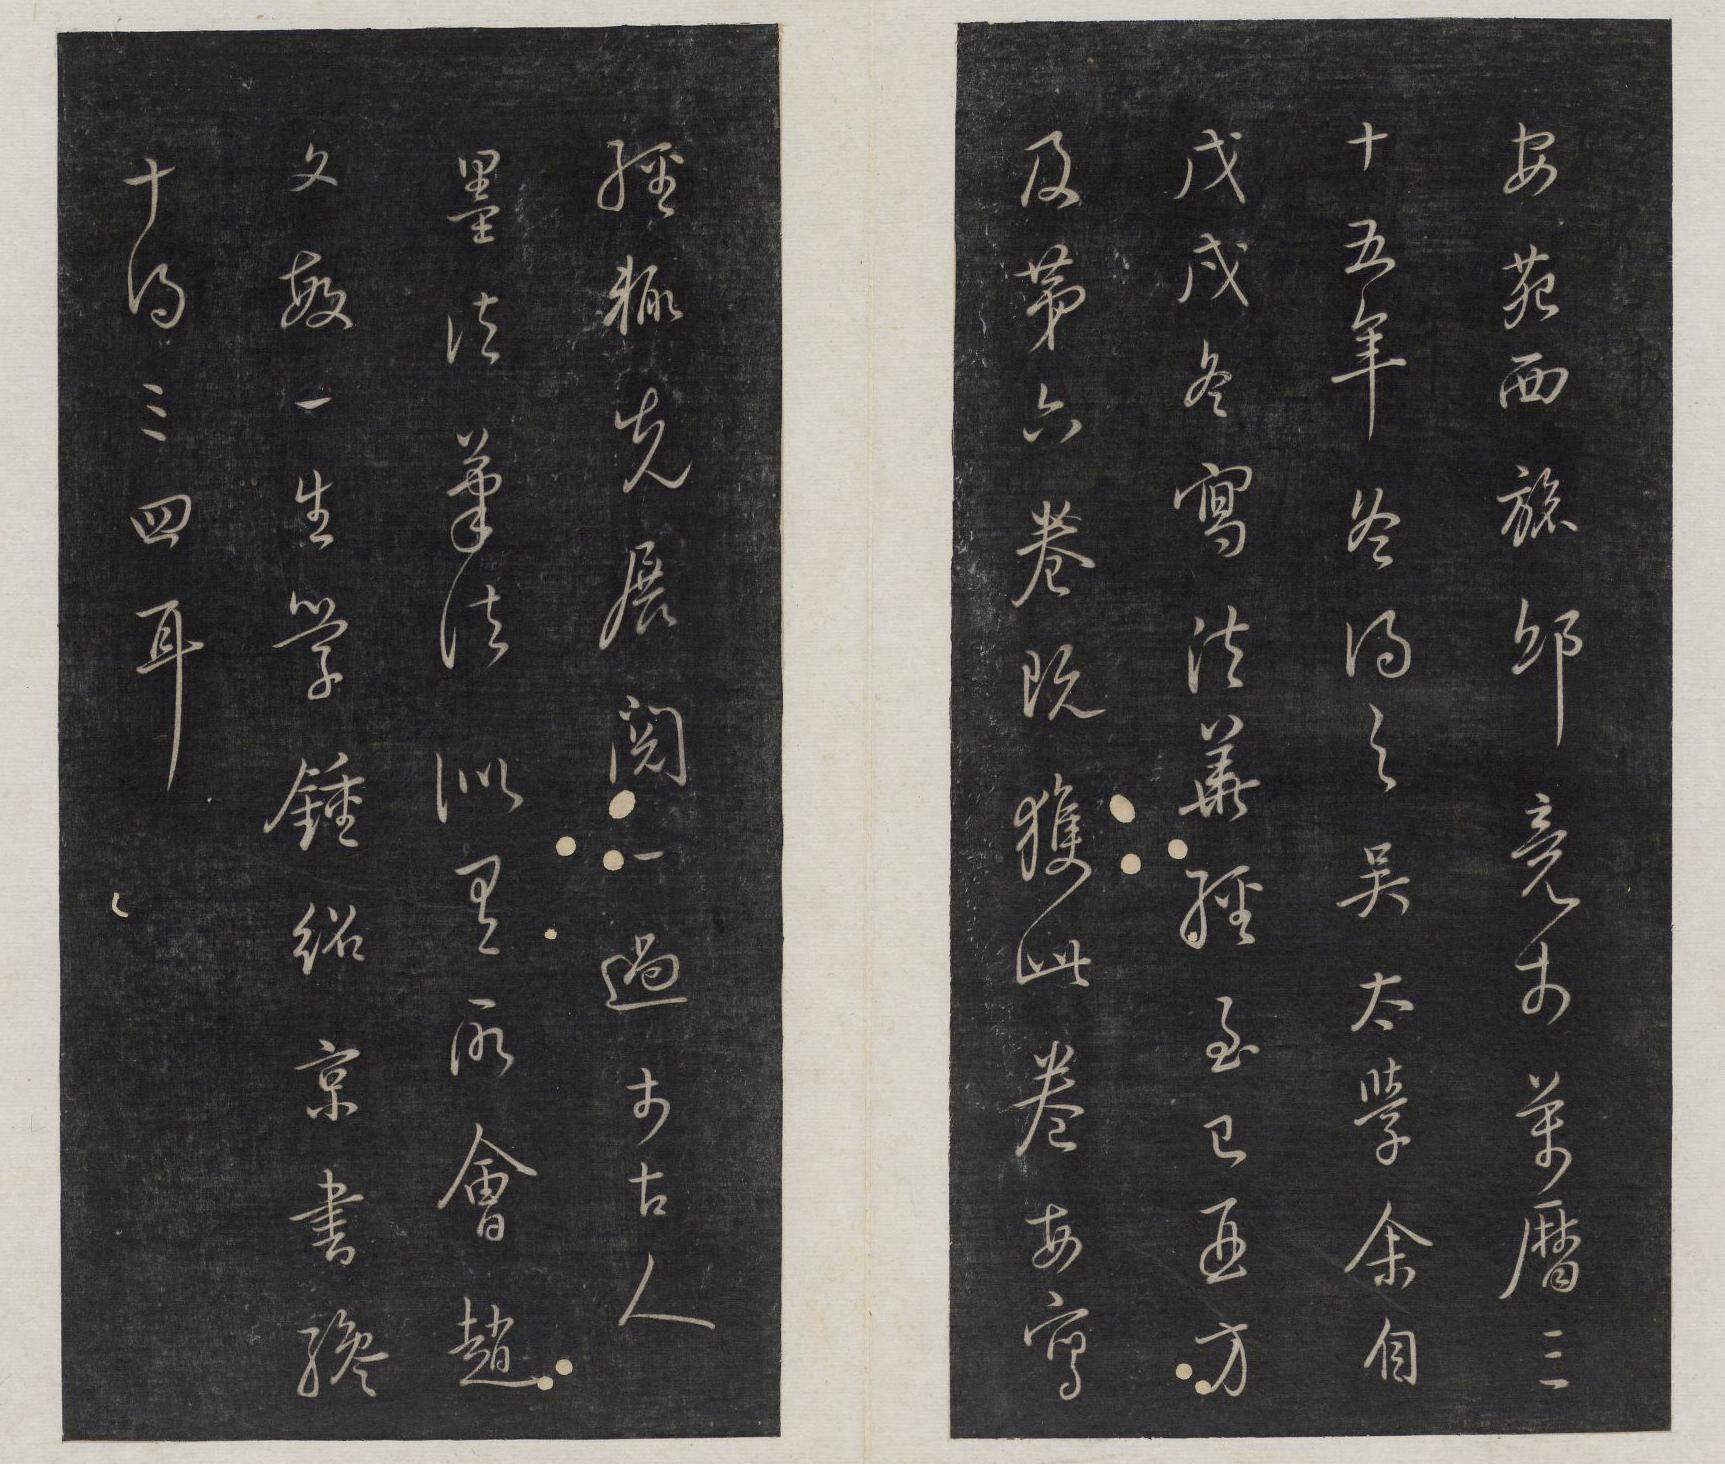 安苑西旅邸竟於萬曆三
十五年冬得之吳太學余自
戊戌冬寫法華經至己酉方
及第六卷既獲此卷每寫
經輒先展閱一過於古人
墨法筆法似有所會趙
文敏一生學鍾紹京書纔
十得三四耳